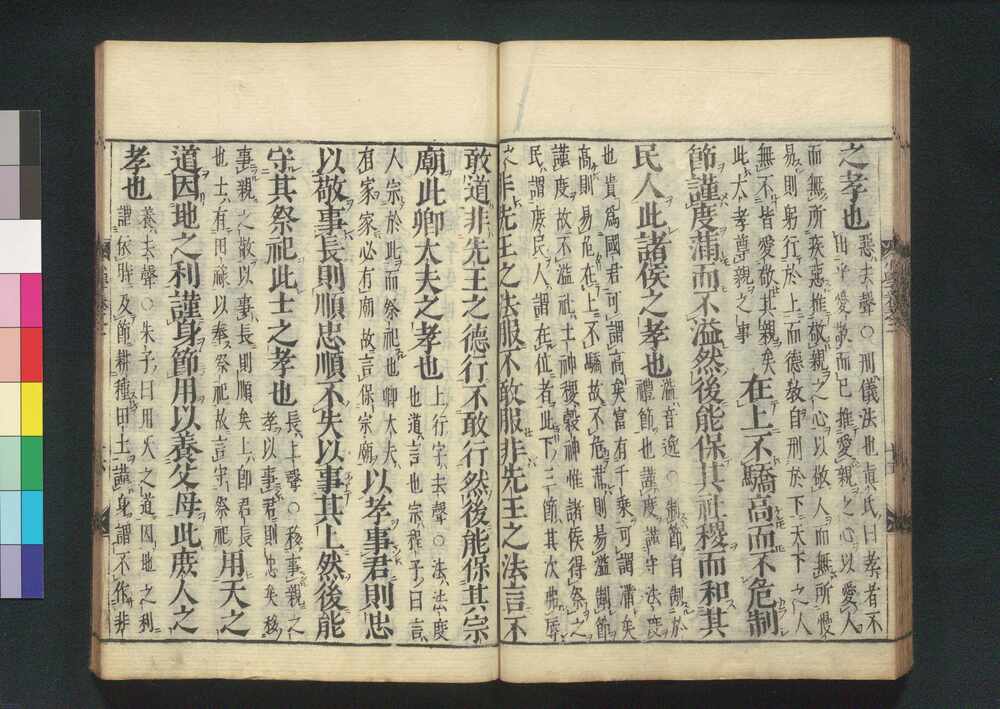 之孝也
惡去聲○刑儀法也眞氏曰孝者不
出乎愛敬而已推愛親之心以愛人
而無所疾惡推敬親之心以敬人而無所慢
易則躬行於上而德敎自刑於下天下之人
無不皆愛敬其親矣
此大孝尊親之事
在上不驕高而不危制
節謹度滿而不溢然後能保其社稷而和其
民人此諸侯之孝也
溢音逸○制節自制於
禮節也謹度謹守法度
也貴爲國君可謂高矣富有千乘可謂滿矣
高則易危在上不驕故不危滿則易溢制節
謹度故不溢社土神稷穀神惟諸侯得祭之
民謂庶民人謂在位者此下三節其次弗辱
之
非先王之法服不敢服非先王之法言不
敢道非先王之德行不敢行然後能保其宗
廟此卿大夫之孝也
上行字去聲○法法度
也道言也宗程子曰言
人宗於此而祭祀也卿大夫
有家家必有廟故言保宗廟
以孝事君則忠
以敬事長則順忠順不失以事其上然後能
守其祭祀此士之孝也
長上聲○移事親之
孝以事君則忠矣移
事親之敬以事長則順矣上卽君長
也士有田祿以奉祭祀故言守祭祀
用天之
道因地之利謹身節用以養父母此庶人之
孝也
養去聲○朱子曰用天之道因地之利
謂依時及節耕種田土謹身謂不作非